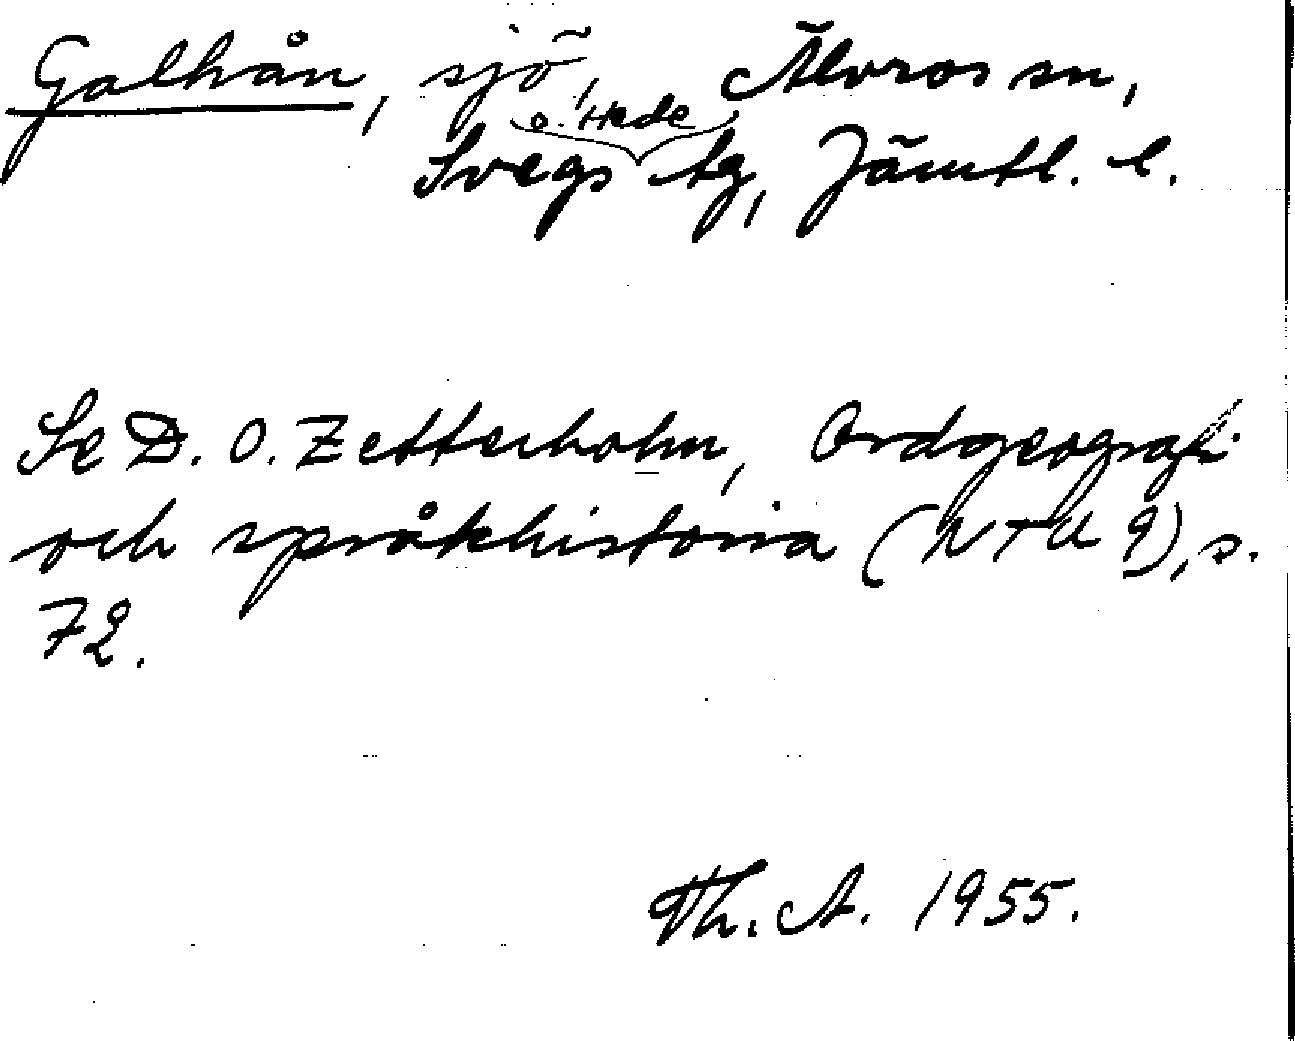 Galhån, sjö, Älvros sn,
o. Hede
Svegs tg, Jämtl. l.
Se D. O. Zetterholm, Ordgeografi
och språkhistoria (NTU 9), s.
72.
Th. A. 1955.